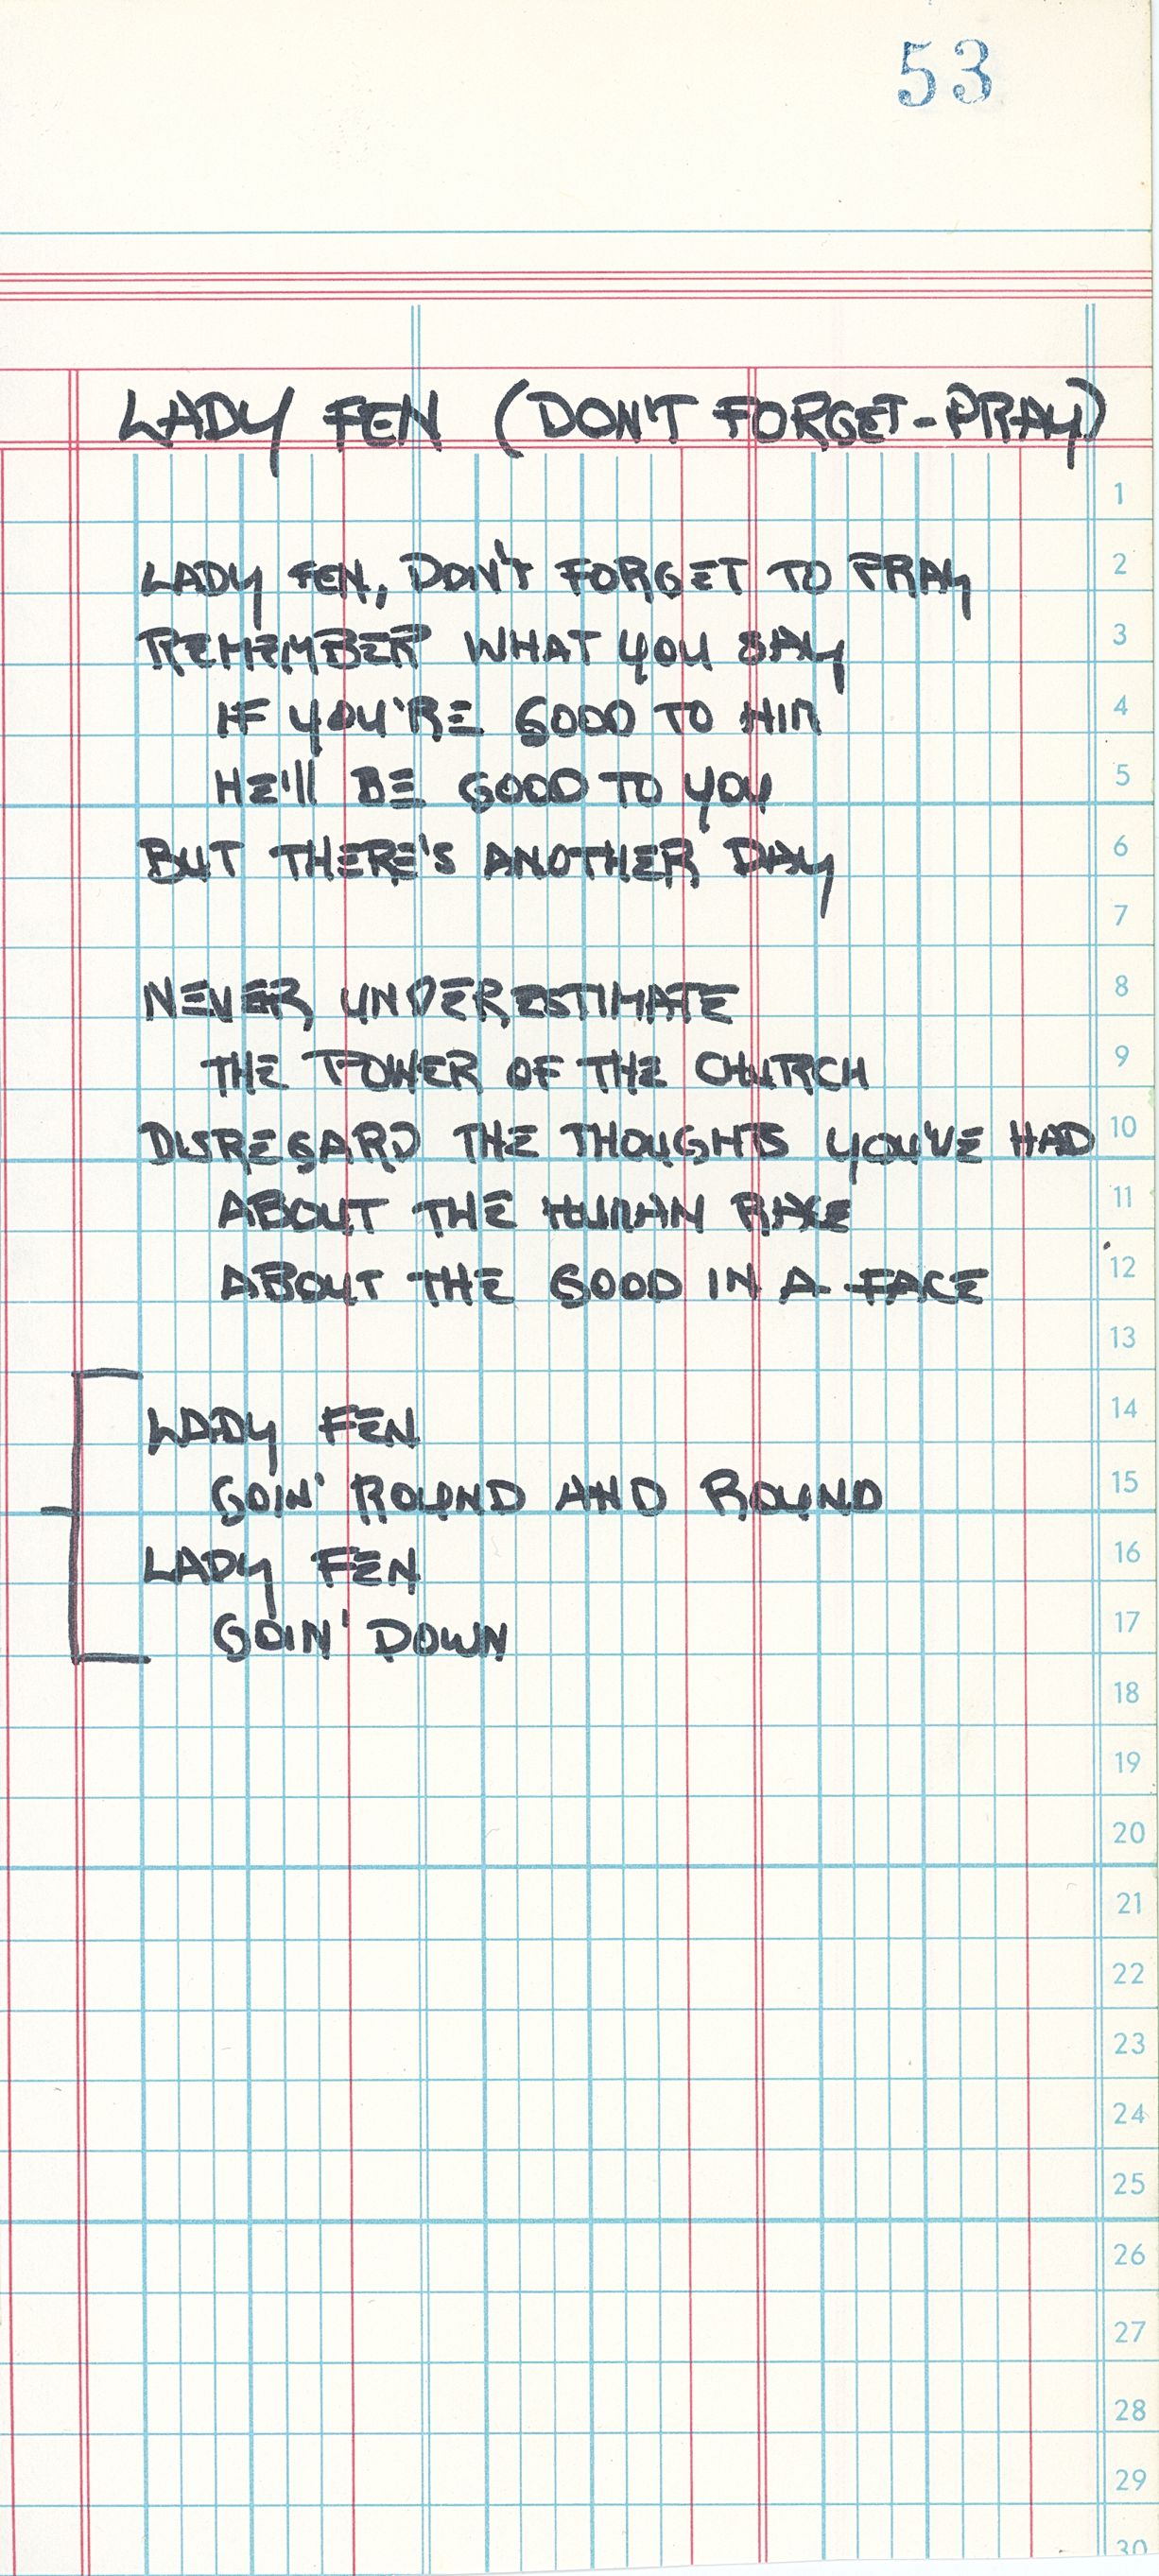 53
LADY FEN (DON'T FORGET-PRAY)
1
LADY FEN, DON'T FORGET TO PRAY 2
REMEMBER WHAT YOU SAY 3
IF YOU'RE GOOD TO HIM 4
HE'll BE GOOD TO YOU 5
BUT THERE'S ANOTHER DAY 6
7
NEVER UNDERESTIMATE 8
THE POWER OF THE CHURCH 9
DISREGARD THE THOUGHTS YOU'VE HAD 10
ABOUT THE HUMAN RACE 11
ABOUT THE GOOD IN A FACE 12
13
LADY FEN 14
GOIN' ROUND AND ROUND 15
LADY FEN 16
GOIN' DOWN 17
18
19
20
21
22
23
24
25
26
27
28
29
30